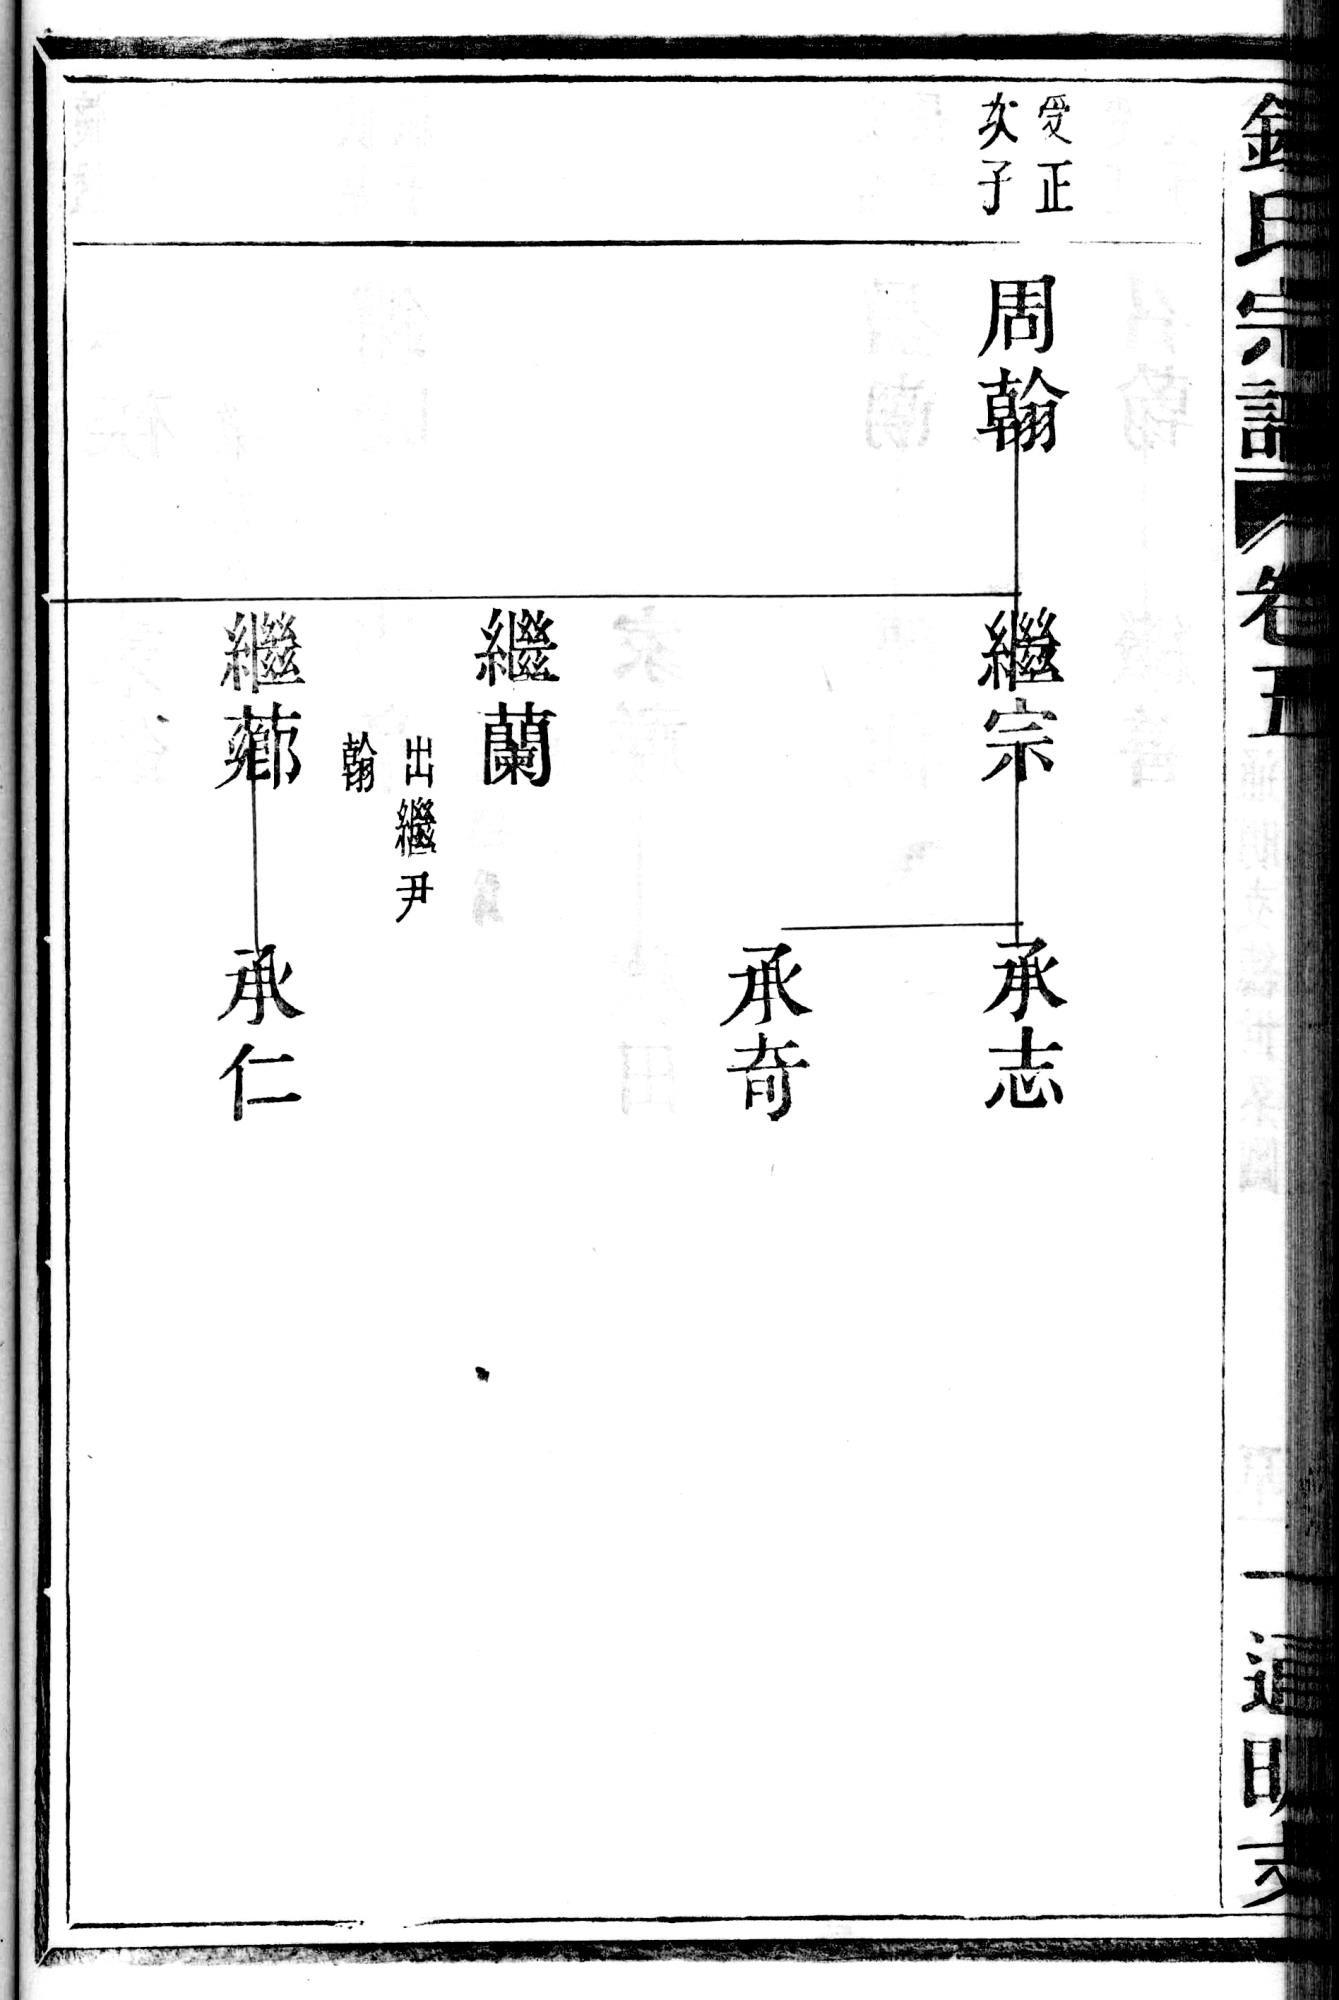 氏宗譜
卷五
一
通明支
受正
次子
周翰
繼宗
承志
承奇
繼蘭
出繼尹
翰
繼薌
承仁